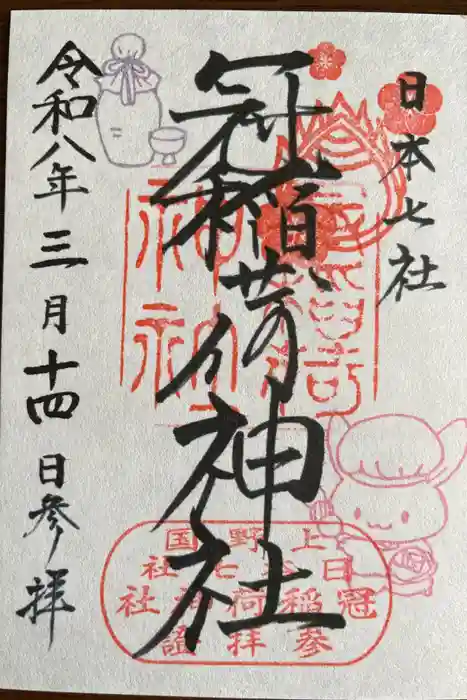 日本七社
冠稲荷神社
令和八年三月十四日参拝
上野国
日本七社
冠稲荷神社
参拝證